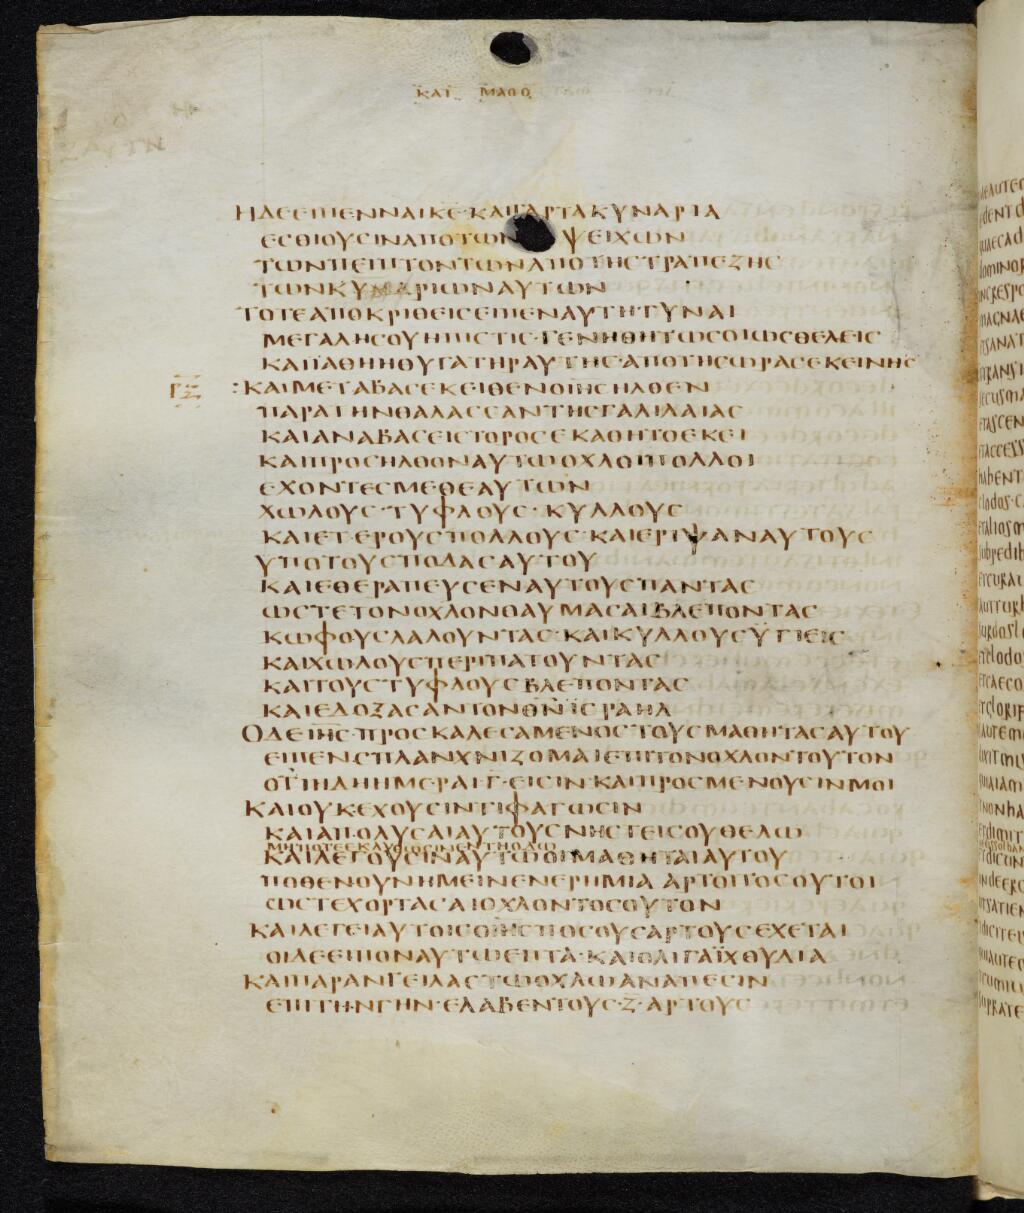 ΚΑΤ ΜΑΘΘ
ΗΔΕΕΙΠΕΝΝΑΙΚΕ·ΚΑΙΓΑΡΤΑΚΥΝΑΡΙΑ
ΕΣΘΙΟΥΣΙΝΑΠΟΤΩΝ ΨΕΙΧΩΝ
ΤΩΝΠΕΙΠΤΟΝΤΩΝΑΠΟΤΗΣΤΡΑΠΕΖΗΣ
ΤΩΝΚΥΝΑΡΙΩΝΑΥΤΩΝ
ΤΟΤΕΑΠΟΚΡΙΘΕΙΣΕΙΠΕΝΑΥΤΗ·ΓΥΝΑΙ
ΜΕΓΑΛΗΣΟΥΗΠΙΣΤΙΣ·ΓΕΝΗΘΗΤΩΣΟΙΩΣΘΕΛΕΙΣ
ΚΑΙΙΑΘΗΗΘΥΓΑΤΗΡΑΥΤΗΣ·ΑΠΟΤΗΣΩΡΑΣΕΚΕΙΝΗΣ
ΡΞ :ΚΑΙΜΕΤΑΒΑΣΕΚΕΙΘΕΝΟΙΗΣΗΛΘΕΝ
ΠΑΡΑΤΗΝΘΑΛΑΣΣΑΝΤΗΣΓΑΛΙΛΑΙΑΣ
ΚΑΙΑΝΑΒΑΣΕΙΣΤΟΡΟΣΕΚΑΘΗΤΟΕΚΕΙ
ΚΑΙΠΡΟΣΗΛΘΟΝΑΥΤΩΟΧΛΟΙΠΟΛΛΟΙ
ΕΧΟΝΤΕΣΜΕΘΕΑΥΤΩΝ
ΧΩΛΟΥΣ·ΤΥΦΛΟΥΣ·ΚΥΛΛΟΥΣ
ΚΑΙΕΤΕΡΟΥΣΠΟΛΛΟΥΣ·ΚΑΙΕΡΙΨΑΝΑΥΤΟΥΣ
ΥΠΟΤΟΥΣΠΟΔΑΣΑΥΤΟΥ
ΚΑΙΕΘΕΡΑΠΕΥΣΕΝΑΥΤΟΥΣΠΑΝΤΑΣ
ΩΣΤΕΤΟΝΟΧΛΟΝΘΑΥΜΑΣΑΙΒΛΕΠΟΝΤΑΣ
ΚΩΦΟΥΣΛΑΛΟΥΝΤΑΣ·ΚΑΙΚΥΛΛΟΥΣΥΓΙΕΙΣ
ΚΑΙΧΩΛΟΥΣΠΕΡΙΠΑΤΟΥΝΤΑΣ
ΚΑΙΤΟΥΣΤΥΦΛΟΥΣΒΛΕΠΟΝΤΑΣ
ΚΑΙΕΔΟΞΑΣΑΝΤΟΝΘΝΙΣΡΑΗΛ
ΟΔΕΙΗΣ·ΠΡΟΣΚΑΛΕΣΑΜΕΝΟΣΤΟΥΣΜΑΘΗΤΑΣΑΥΤΟΥ
ΕΙΠΕΝΣΠΛΑΝΧΝΙΖΟΜΑΙΕΠΙΤΟΝΟΧΛΟΝΤΟΥΤΟΝ
ΟΤΙΗΔΗΗΜΕΡΑΙ·Γ·ΕΙΣΙΝ·ΚΑΙΠΡΟΣΜΕΝΟΥΣΙΝΜΟΙ
ΚΑΙΟΥΚΕΧΟΥΣΙΝΤΙΦΑΓΩΣΙΝ
ΚΑΙΑΠΟΛΥΣΑΙΑΥΤΟΥΣΝΗΣΤΕΙΣΟΥΘΕΛΩ
ΜΗΠΟΤΕΕΚΛΥΘΩΣΙΝΕΝΤΗΟΔΩ
ΚΑΙΛΕΓΟΥΣΙΝΑΥΤΩΟΙΜΑΘΗΤΑΙΑΥΤΟΥ
ΠΟΘΕΝΟΥΝΗΜΕΙΝΕΝΕΡΗΜΙΑ ΑΡΤΟΙΤΟΣΟΥΤΟΙ
ΩΣΤΕΧΟΡΤΑΣΑΙΟΧΛΟΝΤΟΣΟΥΤΟΝ
ΚΑΙΛΕΓΕΙΑΥΤΟΙΣΟΙΗΣΠΟΣΟΥΣΑΡΤΟΥΣΕΧΕΤΑΙ
ΟΙΔΕΕΙΠΟΝΑΥΤΩΕΠΤΑ·ΚΑΙΟΛΙΓΑΪΧΘΥΔΙΑ
ΚΑΙΠΑΡΑΝΓΕΙΛΑΣΤΩΟΧΛΩΑΝΑΠΕΣΙΝ
ΕΠΙΤΗΝΓΗΝ·ΕΛΑΒΕΝΤΟΥΣ·Ζ·ΑΡΤΟΥΣ